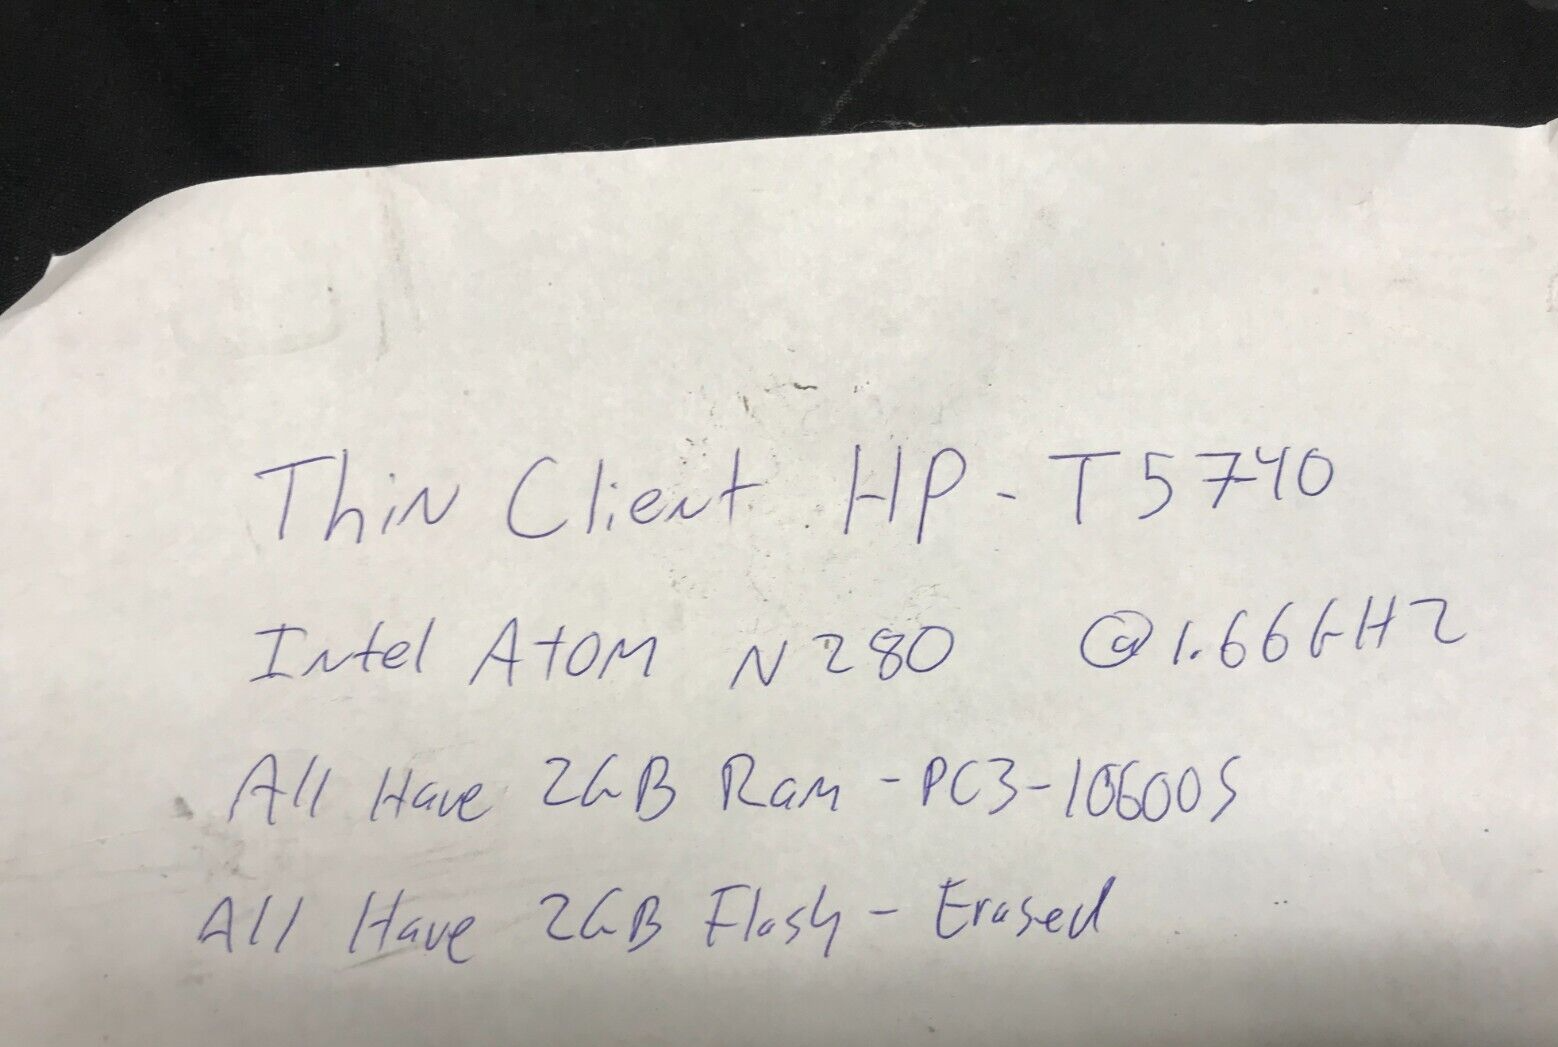 Thin Client HP - T5740
Intel Atom N280 @1.66GHz
All Have 2GB Ram - PC3-10600S
All Have 2GB Flash - Erased